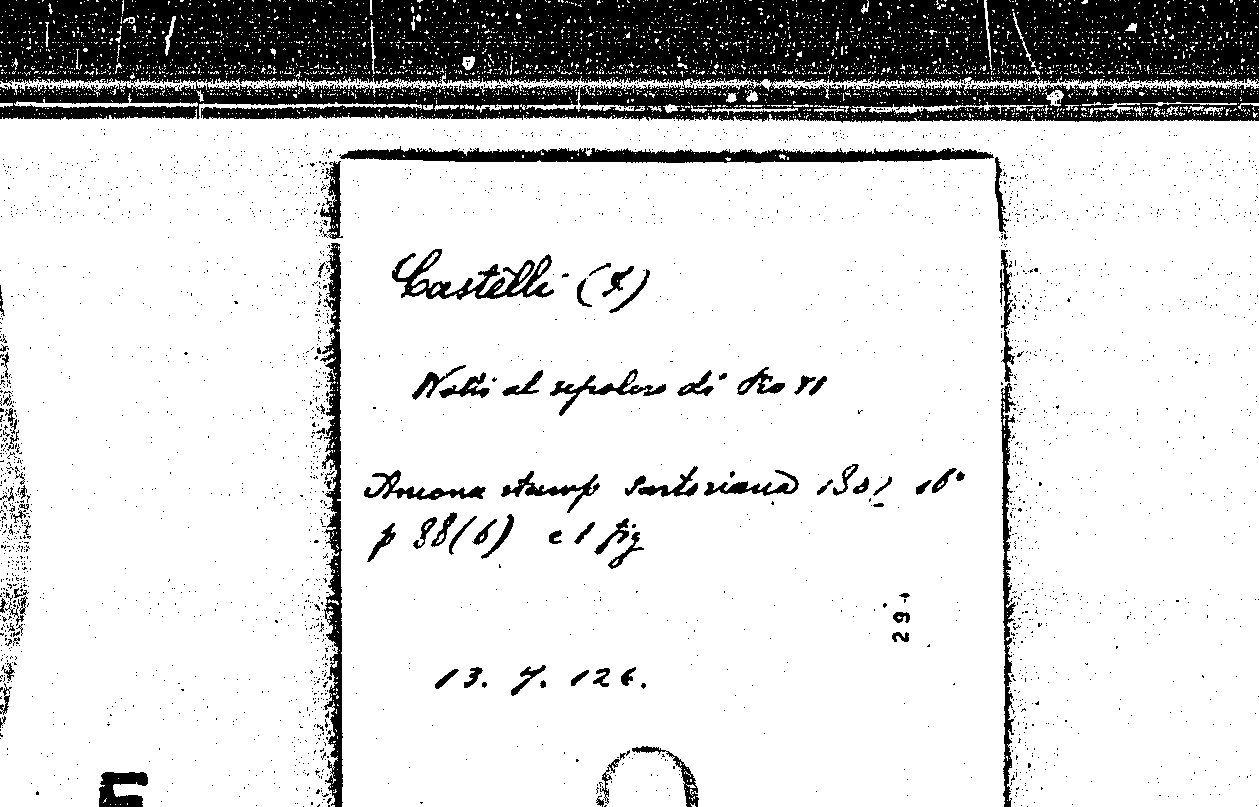 Castelli (I)
Notti al sepolcro di Pio VI
Ancona stamp Sartoriana 1801 16°
p 88(6) e 1 fig
29
13. 7. 126.